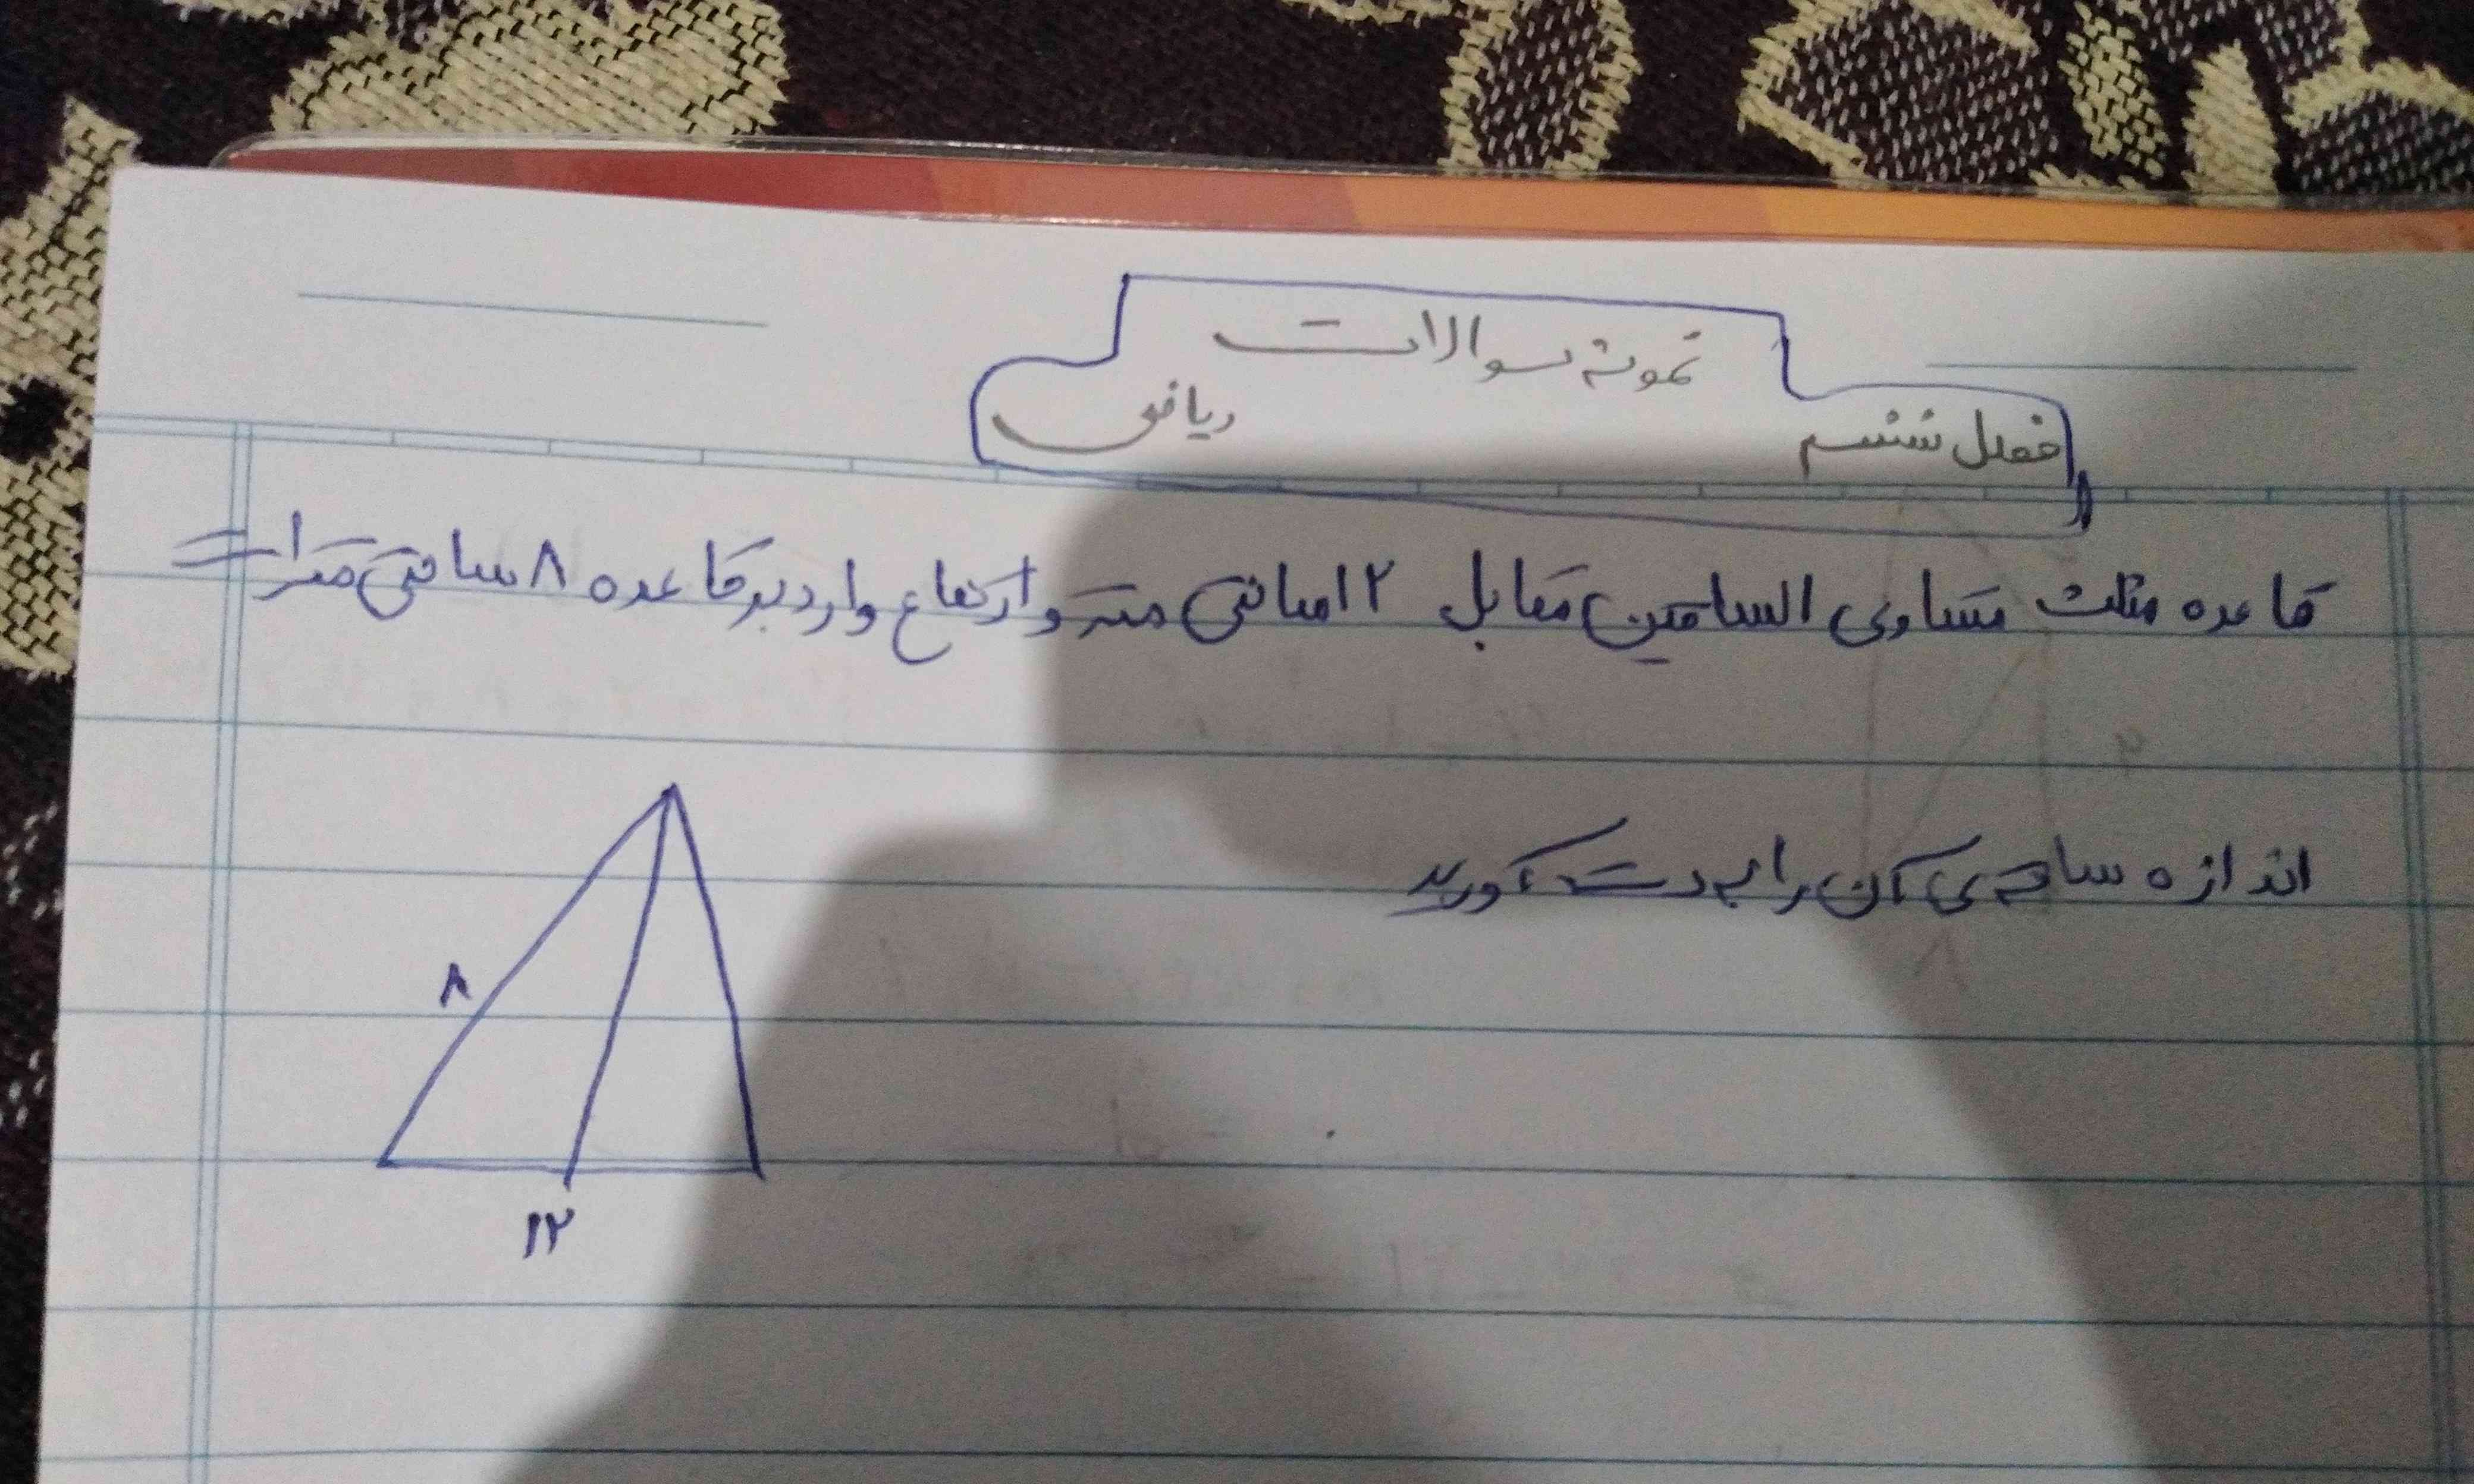 نمونه سوالات
فصل ششم ریاضی
قاعده مثلث متساوی الساقین مقابل ۱۲ سانتی متر و ارتفاع وارد بر قاعده ۸ سانتی متر است
اندازه ساق ی آن را به دست آورید
۸
۱۲